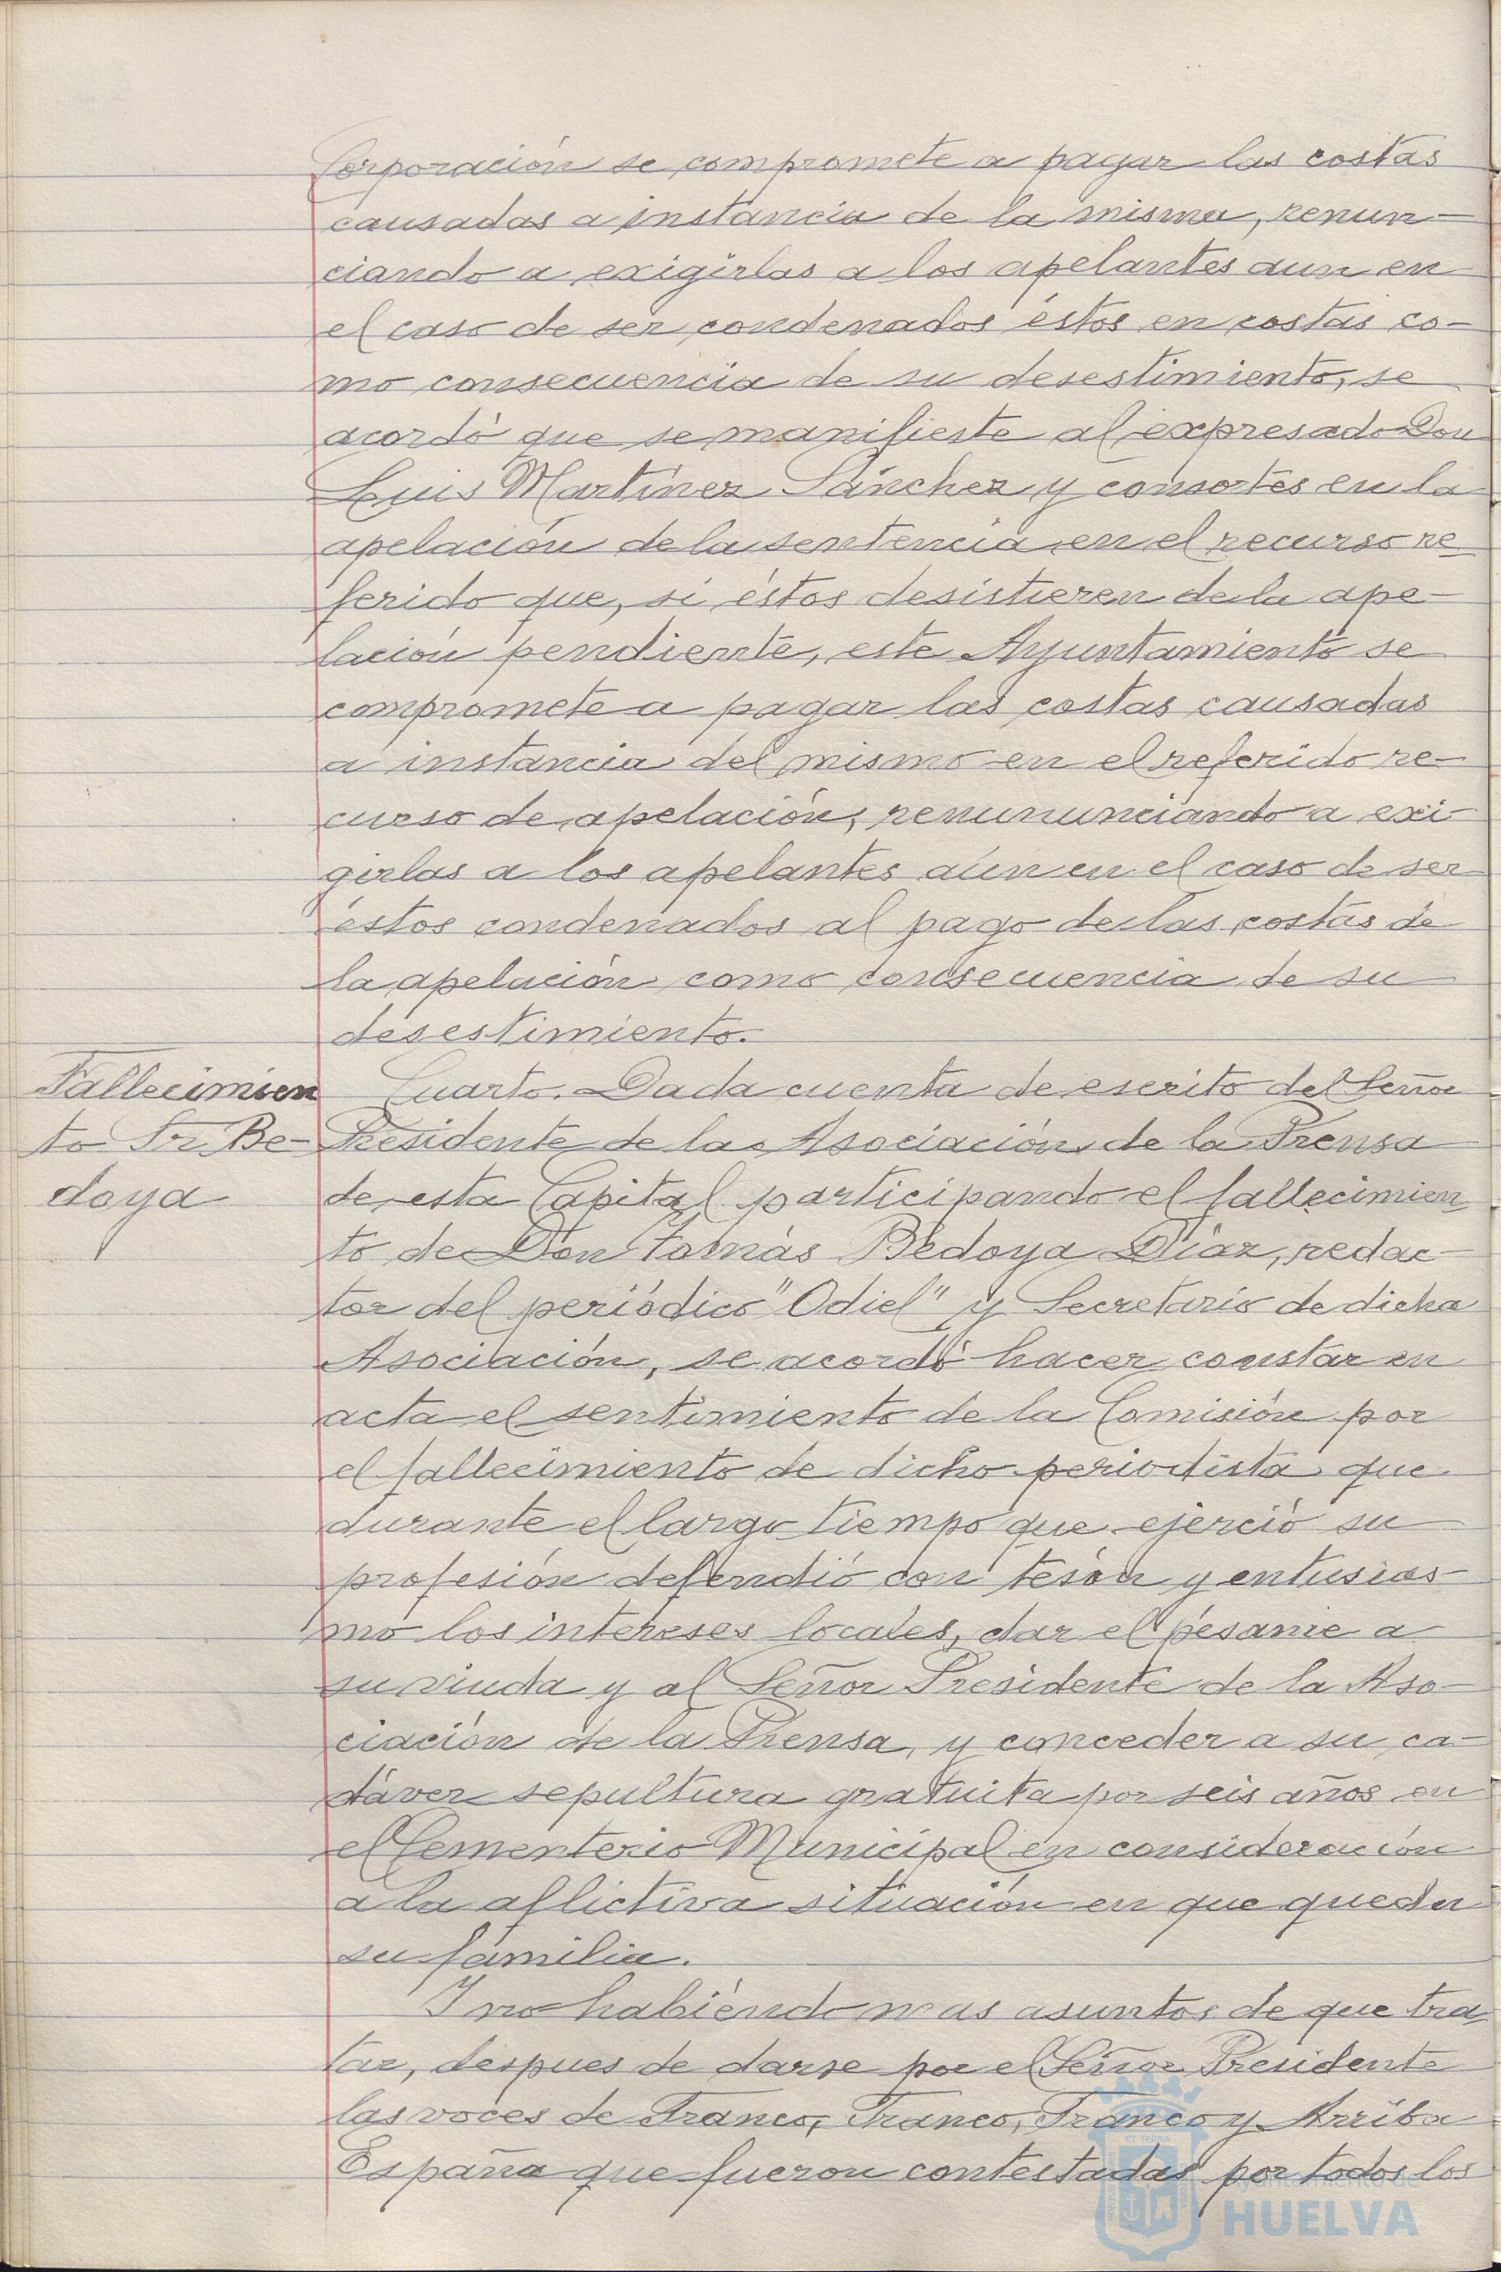 Corporación se compromete a pagar las costas
causadas a instancia de la misma, renun-
ciando a exigirlas a los apelantes aun en
el caso de ser condenados éstos en costas co-
mo consecuencia de su desestimiento, se
acordó que se manifieste al expresado Don
Luis Martínez Sánchez y consortes en la
apelación de la sentencia en el recurso re-
ferido que, si éstos desistieren de la ape-
lación pendiente, este Ayuntamiento se
compromete a pagar las costas causadas
a instancia del mismo en el referido re-
curso de apelación, renununciando a exi-
girlas a los apelantes aún en el caso de ser
éstos condenados al pago de las costas de
la apelación como consecuencia de su
desestimiento.
Fallecimien
to Sr. Be-
doya
Cuarto. Dada cuenta de escrito del Señor
Presidente de la Asociación de la Prensa
de esta Capital participando el fallecimien
to de Don Tomás Bedoya Díaz, redac-
tor del periódico "Odiel" y Secretario de dicha
Asociación, se acordó hacer constar en
acta el sentimiento de la Comisión por
el fallecimiento de dicho periodista que
durante el largo tiempo que ejerció su
profesión defendió con tesón y entusias-
mo los intereses locales, dar el pésame a
su viuda y al Señor Presidente de la Aso-
ciación de la Prensa, y conceder a su ca-
dáver sepultura gratuita por seis años en
el Cementerio Municipal en consideración
a la aflictiva situación en que queda
su familia.
Y no habiendo mas asuntos de que tra-
tar, despues de darse por el Señor Presidente
las voces de Franco, Franco, Franco y Arriba
España que fueron contestadas por todos los
Ayuntamiento de
HUELVA